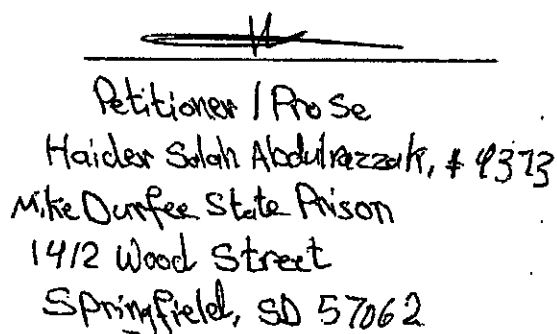 Petitioner / Pro Se
Haider Salah Abdulrazzak, # 4373
Mike Durfee State Prison
1412 Wood Street
Springfield, SD 57062